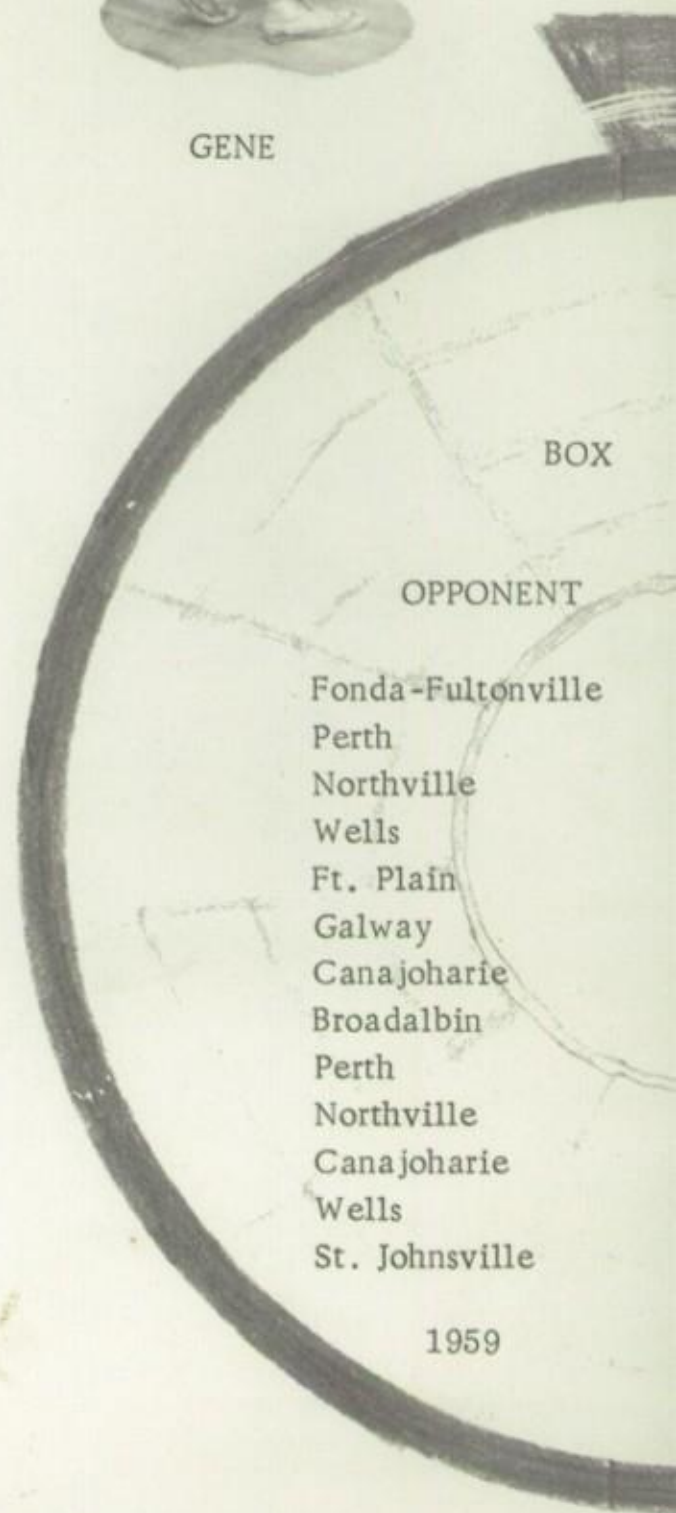 GENE
BOX
OPPONENT
Fonda-Fultonville
Perth
Northville
Wells
Ft. Plain
Galway
Canajoharie
Broadalbin
Perth
Northville
Canajoharie
Wells
St. Johnsville
1959